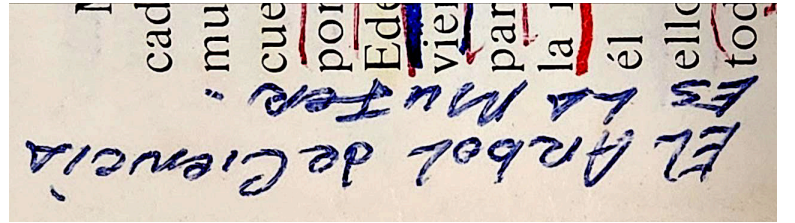 cad
mu
cue
por
Ede
vier
par
la
él
ello
tod
EL Arbol de Ciencia
ES LA MUJER.